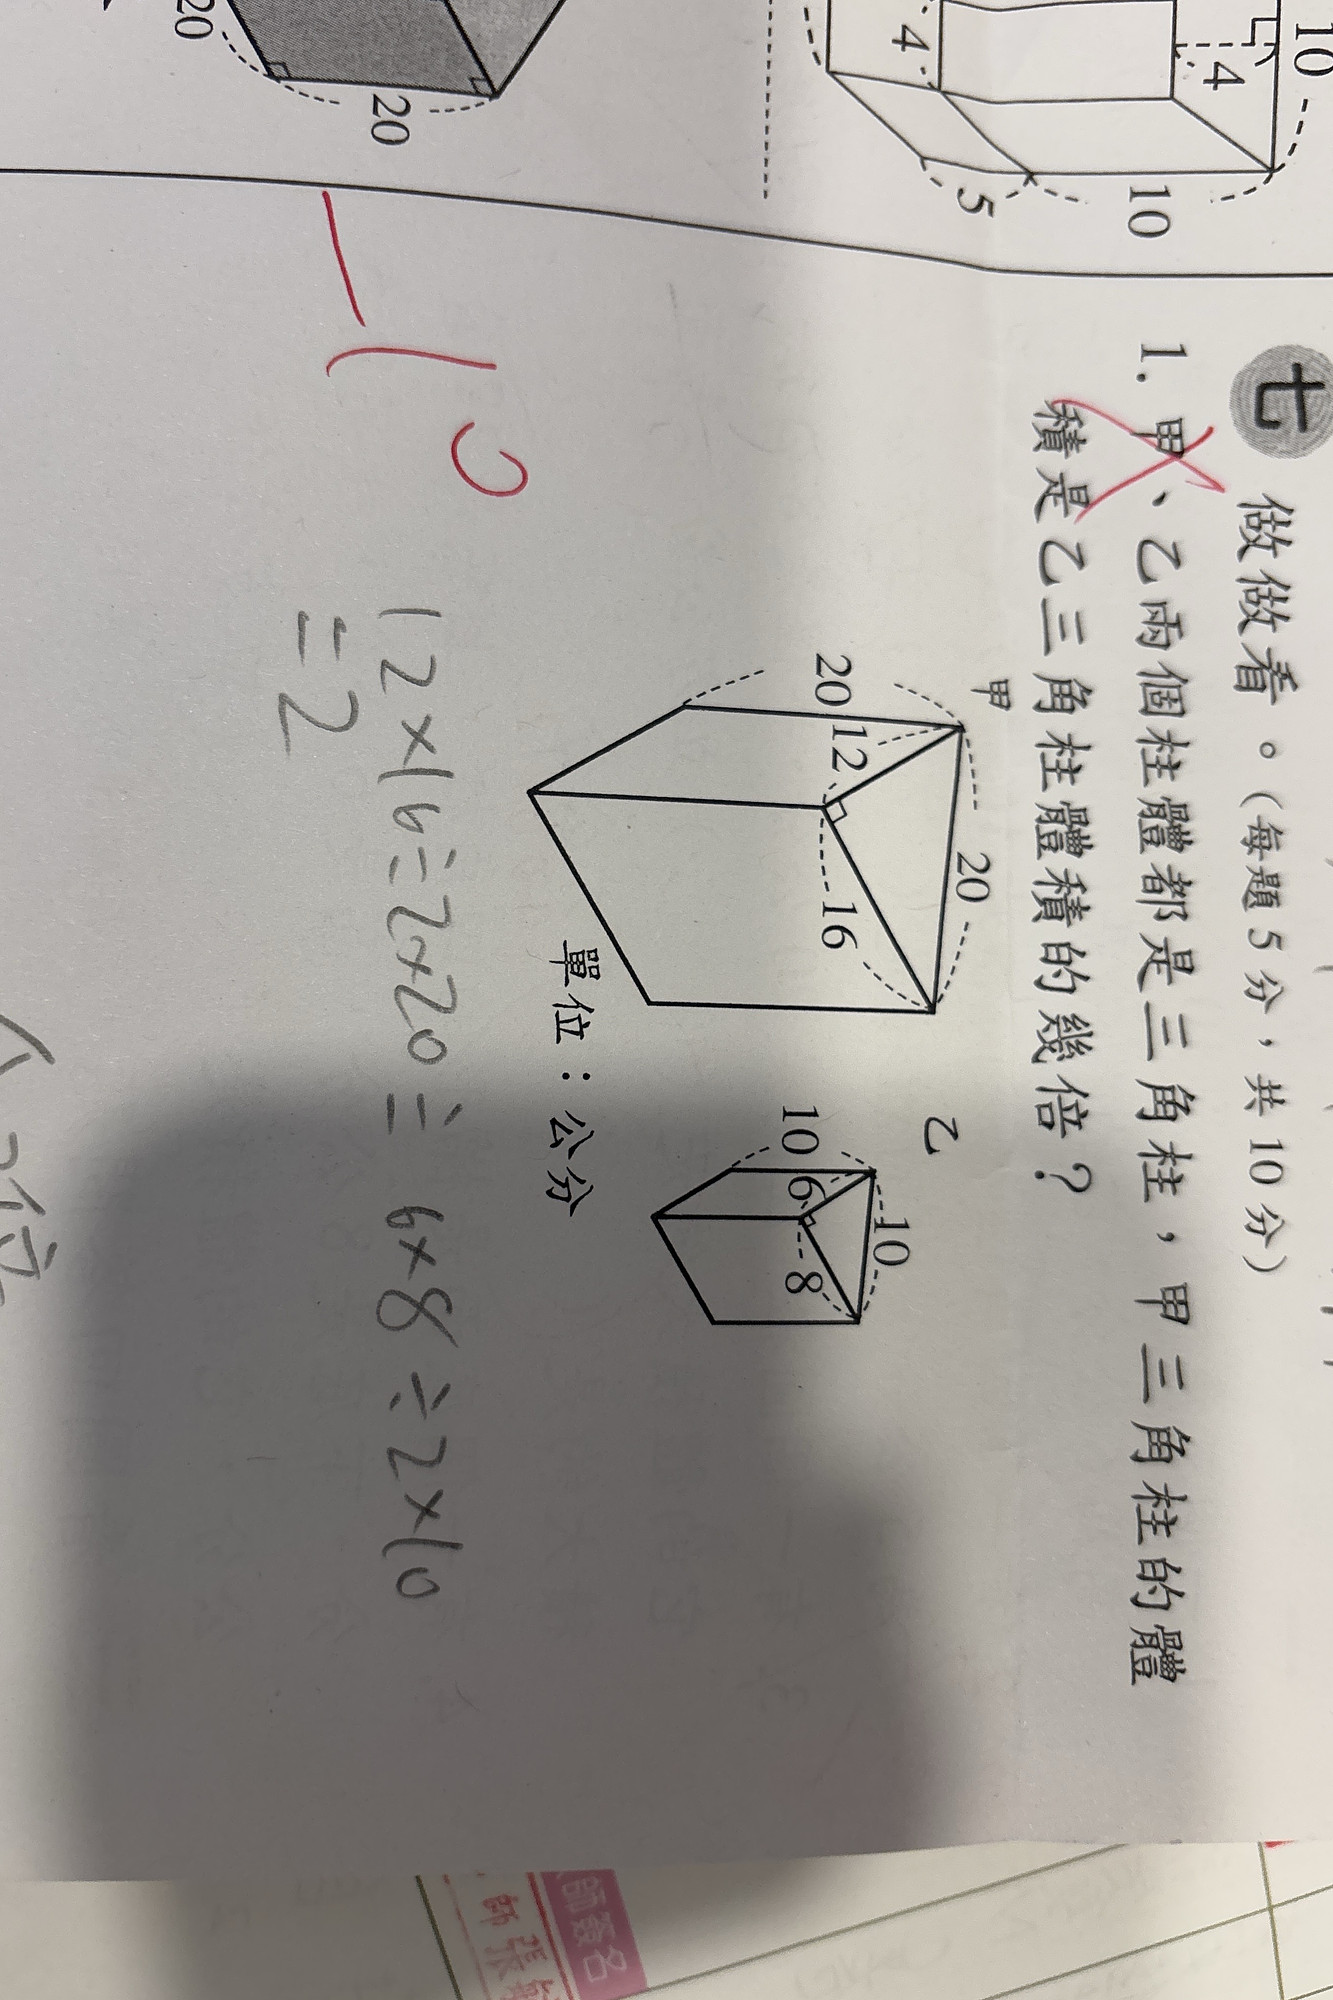 10
4
4
10
5
20
20
七 做做看。(每題5分，共10分)
1. 甲、乙兩個柱體都是三角柱，甲三角柱的體
積是乙三角柱體積的幾倍？
甲
20
20
12
16
乙
10
10
6
8
單位：公分
-10
12×16÷2×20÷ 6×8÷2×10
=2
師簽名
師張